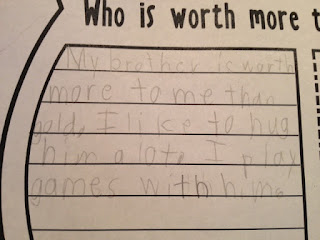 Who is worth more t
My brother is worth
more to me than
gold, I like to hug
him a lot, I play
games with him.